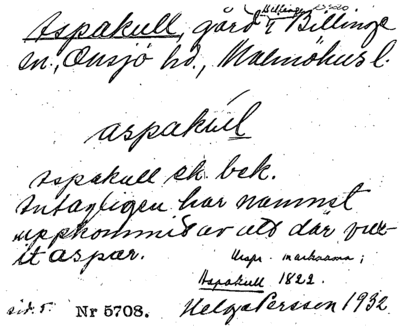 Aspakull, gård i Billinge
sn., Onsjö hd., Malmöhus l.
aspakúll
Aspakull ek. bek.
Antagligen har namnet
uppkommit av att där vux-
it aspar.
Urspr. marknamn;
Aspakull 1822.
sid. 5. Nr 5708. Helge Persson 1932